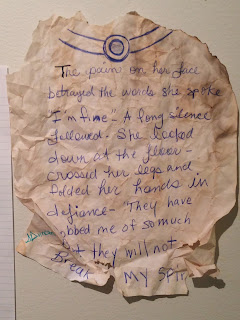 The pain on her face
betrayed the words she spoke
"I'm fine". A long silence
followed. She looked
down at the floor -
crossed her legs and
folded her hands in
defiance - "They have
obbed me of so much
t they will not
Break MY SPI